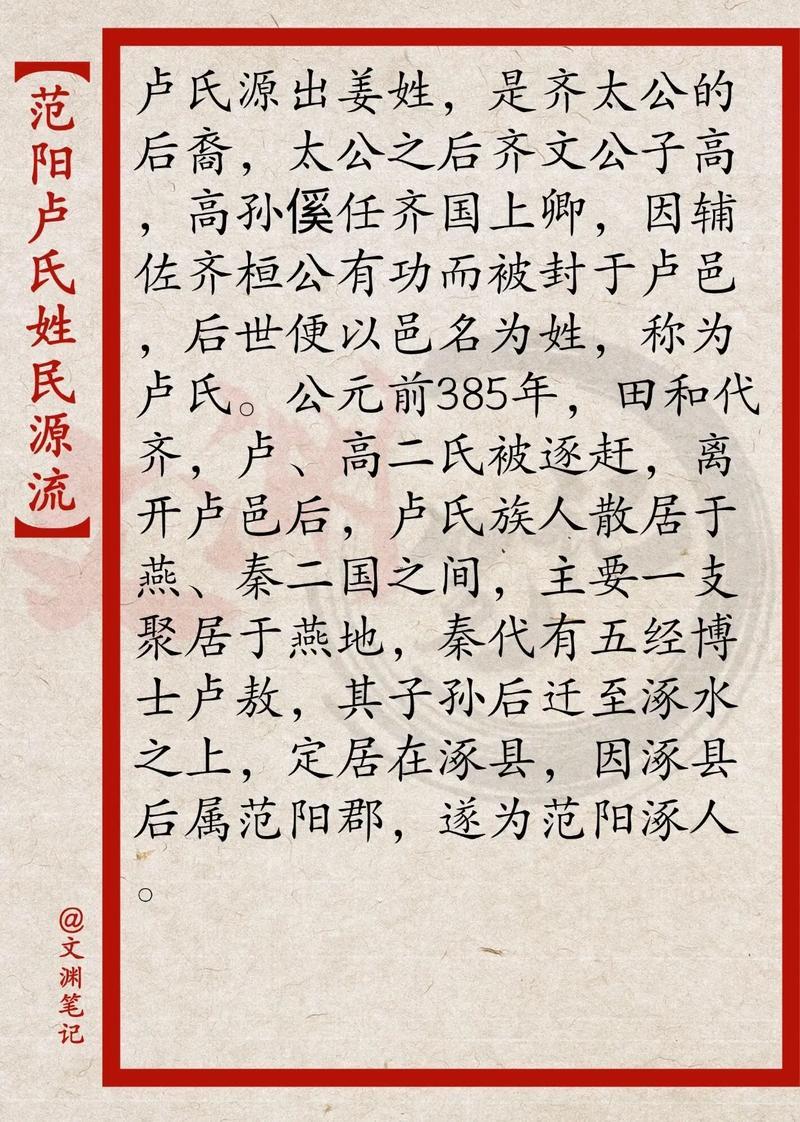 【范阳卢氏姓民源流】
卢氏源出姜姓，是齐太公的
后裔，太公之后齐文公子高
，高孙傒任齐国上卿，因辅
佐齐桓公有功而被封于卢邑
，后世便以邑名为姓，称为
卢氏。公元前385年，田和代
齐，卢、高二氏被逐赶，离
开卢邑后，卢氏族人散居于
燕、秦二国之间，主要一支
聚居于燕地，秦代有五经博
士卢敖，其子孙后迁至涿水
之上，定居在涿县，因涿县
后属范阳郡，遂为范阳涿人
。
@文渊笔记